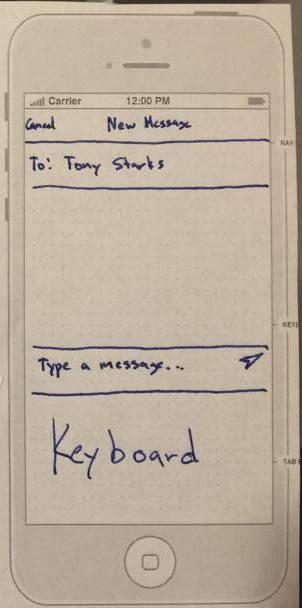 Carrier 12:00 PM
Cancel New Message
NAV
To: Tony Starks
KEYB
Type a message...
Keyboard
TAB